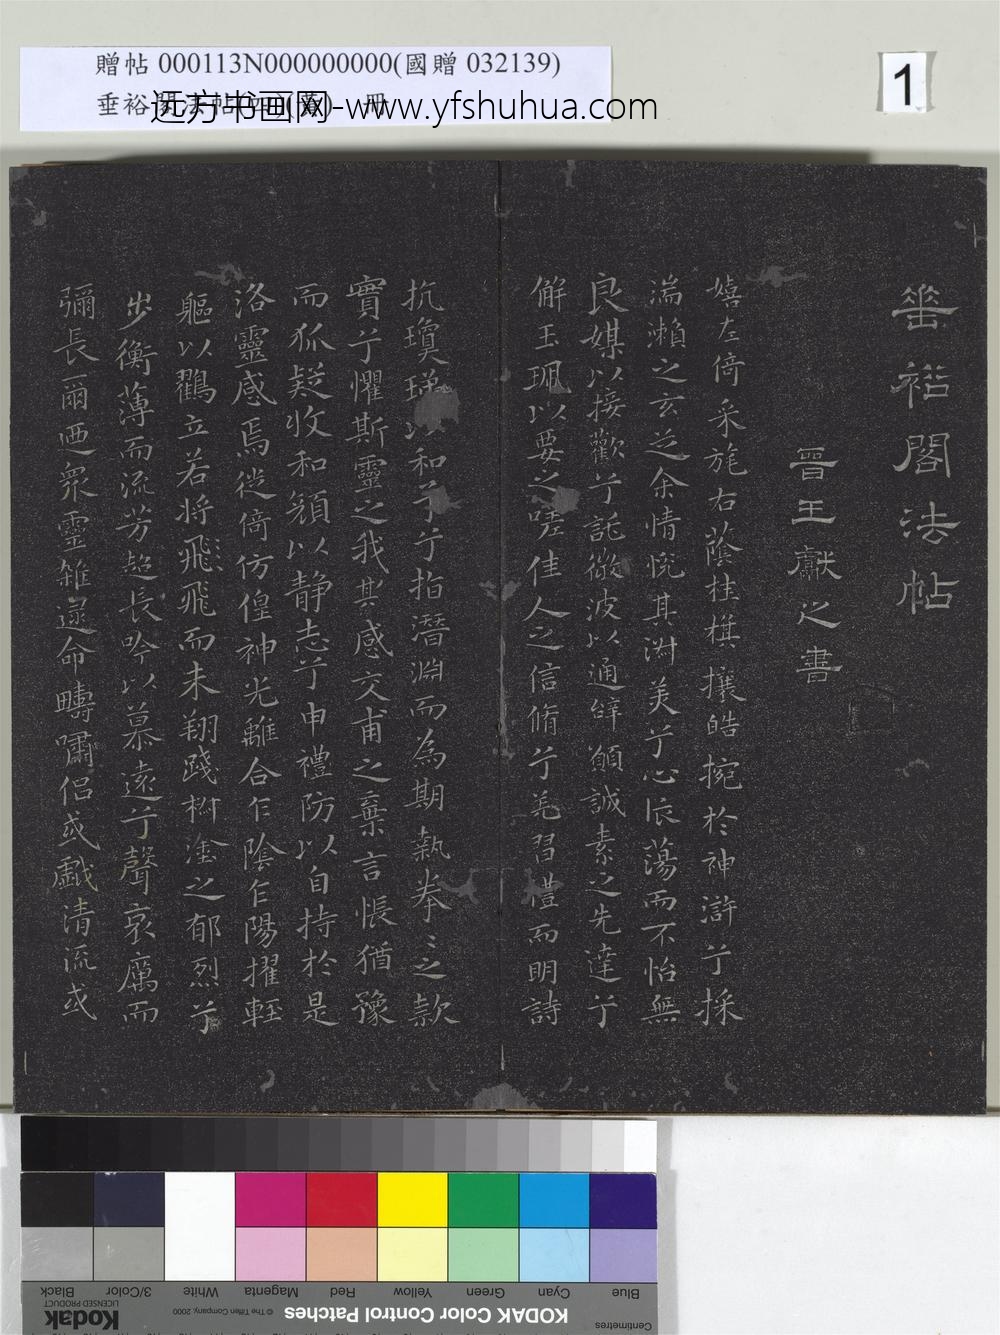 贈帖 000113N000000000(國贈 032139)
垂裕閣法帖 冊
远方书画网-www.yfshuhua.com
1
垂裕閣法帖
晉王獻之書
嬉左倚采旄右蔭桂旗攘皓捥於神滸兮採
湍瀨之玄芝余情恱其淋美兮心振蕩而不怡無
良媒以接歡兮託微波以通辭願誠素之先達兮
解玉珮以要之嗟佳人之信脩兮羌習禮而明詩
抗瓊珶以和予兮指潛淵而為期執拳〻之款
實兮懼斯靈之我其感交甫之棄言悵猶豫
而狐疑收和顏以静志兮申禮防以自持於是
洛靈感焉徙倚仿偟神光離合乍陰乍陽擢輕
軀以鸛立若将飛飛而未翔踐椒塗之郁烈兮
步衡薄而流芳超長吟以慕遠兮聲哀厲而
彌長爾迺衆靈雜遝命疇嘯侣或戱清流或
KODAK Color Control Patches
Kodak
LICENSED PRODUCT
© The Tiffen Company, 2000
Centimetres
Blue
Cyan
Green
Yellow
Red
Magenta
White
3/Color
Black